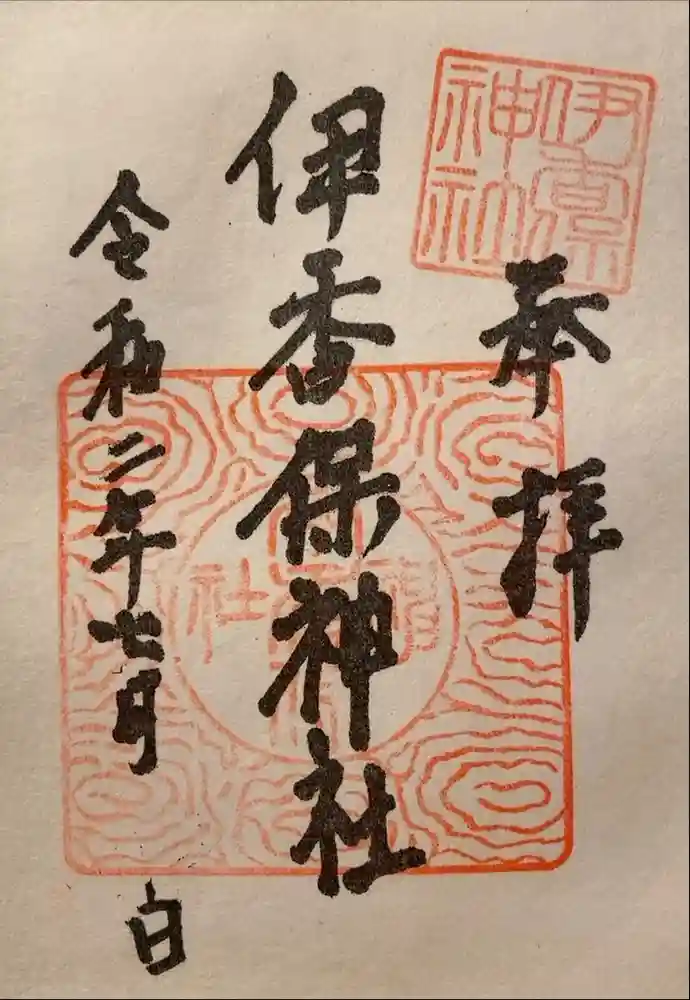 伊香保
神社
奉拝
伊香保神社
令和二年七月 日